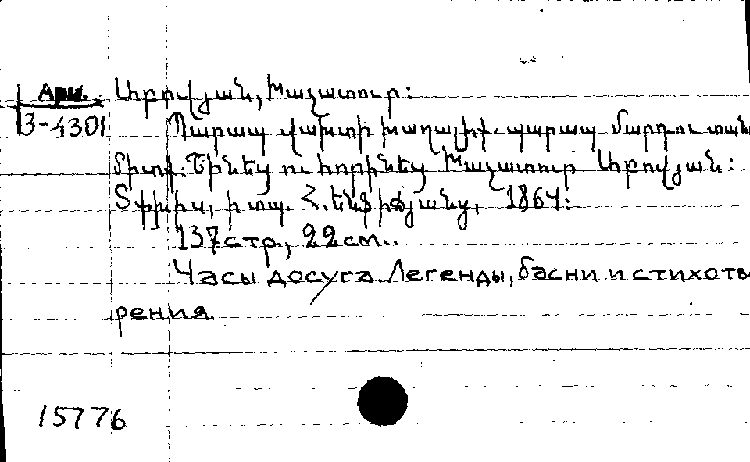 Арм.
3-4301
Աբովյան, Խաչատուր:
Պարապ վախտի խաղալիք. պարապ մարդու տան
միտք: Շինեց ու հորինեց Խաչատուր Աբովյան:
Տփխիս, ի տպ. Հ. Էնֆիաճյանց, 1864:
137 стр., 22 см..
Часы досуга. Легенды, басни и стихотв
рения.
15776